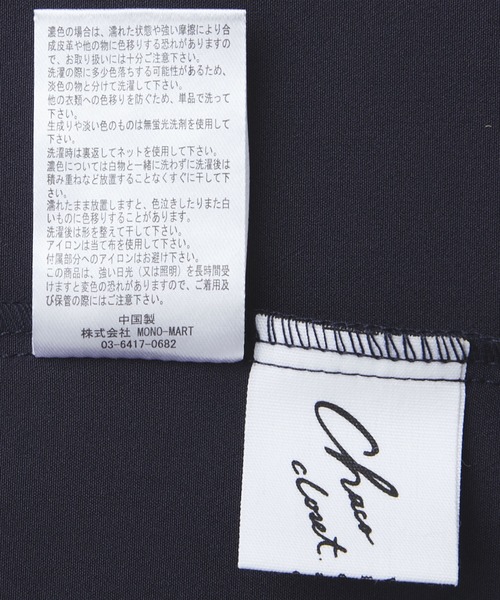 濃色の場合は、濡れた状態や強い摩擦により合
成皮革や他の物に色移りする恐れがありますの
で、お取り扱いには十分ご注意下さい。
洗濯の際に多少色落ちする可能性があるため、
淡色の物と分けて洗濯して下さい。
他の衣類への色移りを防ぐため、単品で洗って
下さい。
生成りや淡い色のものは無蛍光洗剤を使用して
下さい。
洗濯時は裏返してネットを使用して下さい。
濃色については白物と一緒に洗わずに洗濯後は
積み重ねなど放置することなくすぐに干して下
さい。
濡れたまま放置しますと、色泣きしたりまた白
いものに色移りすることがあります。
洗濯後は形を整えて干して下さい。
アイロンは当て布を使用して下さい。
付属部分へのアイロンはお避け下さい。
この商品は、強い日光（又は照明）を長時間受
けますと変色の恐れがありますので、ご着用及
び保管の際にはご注意下さい。
中国製
株式会社 MONO-MART
03-6417-0682
Chaco
closet.